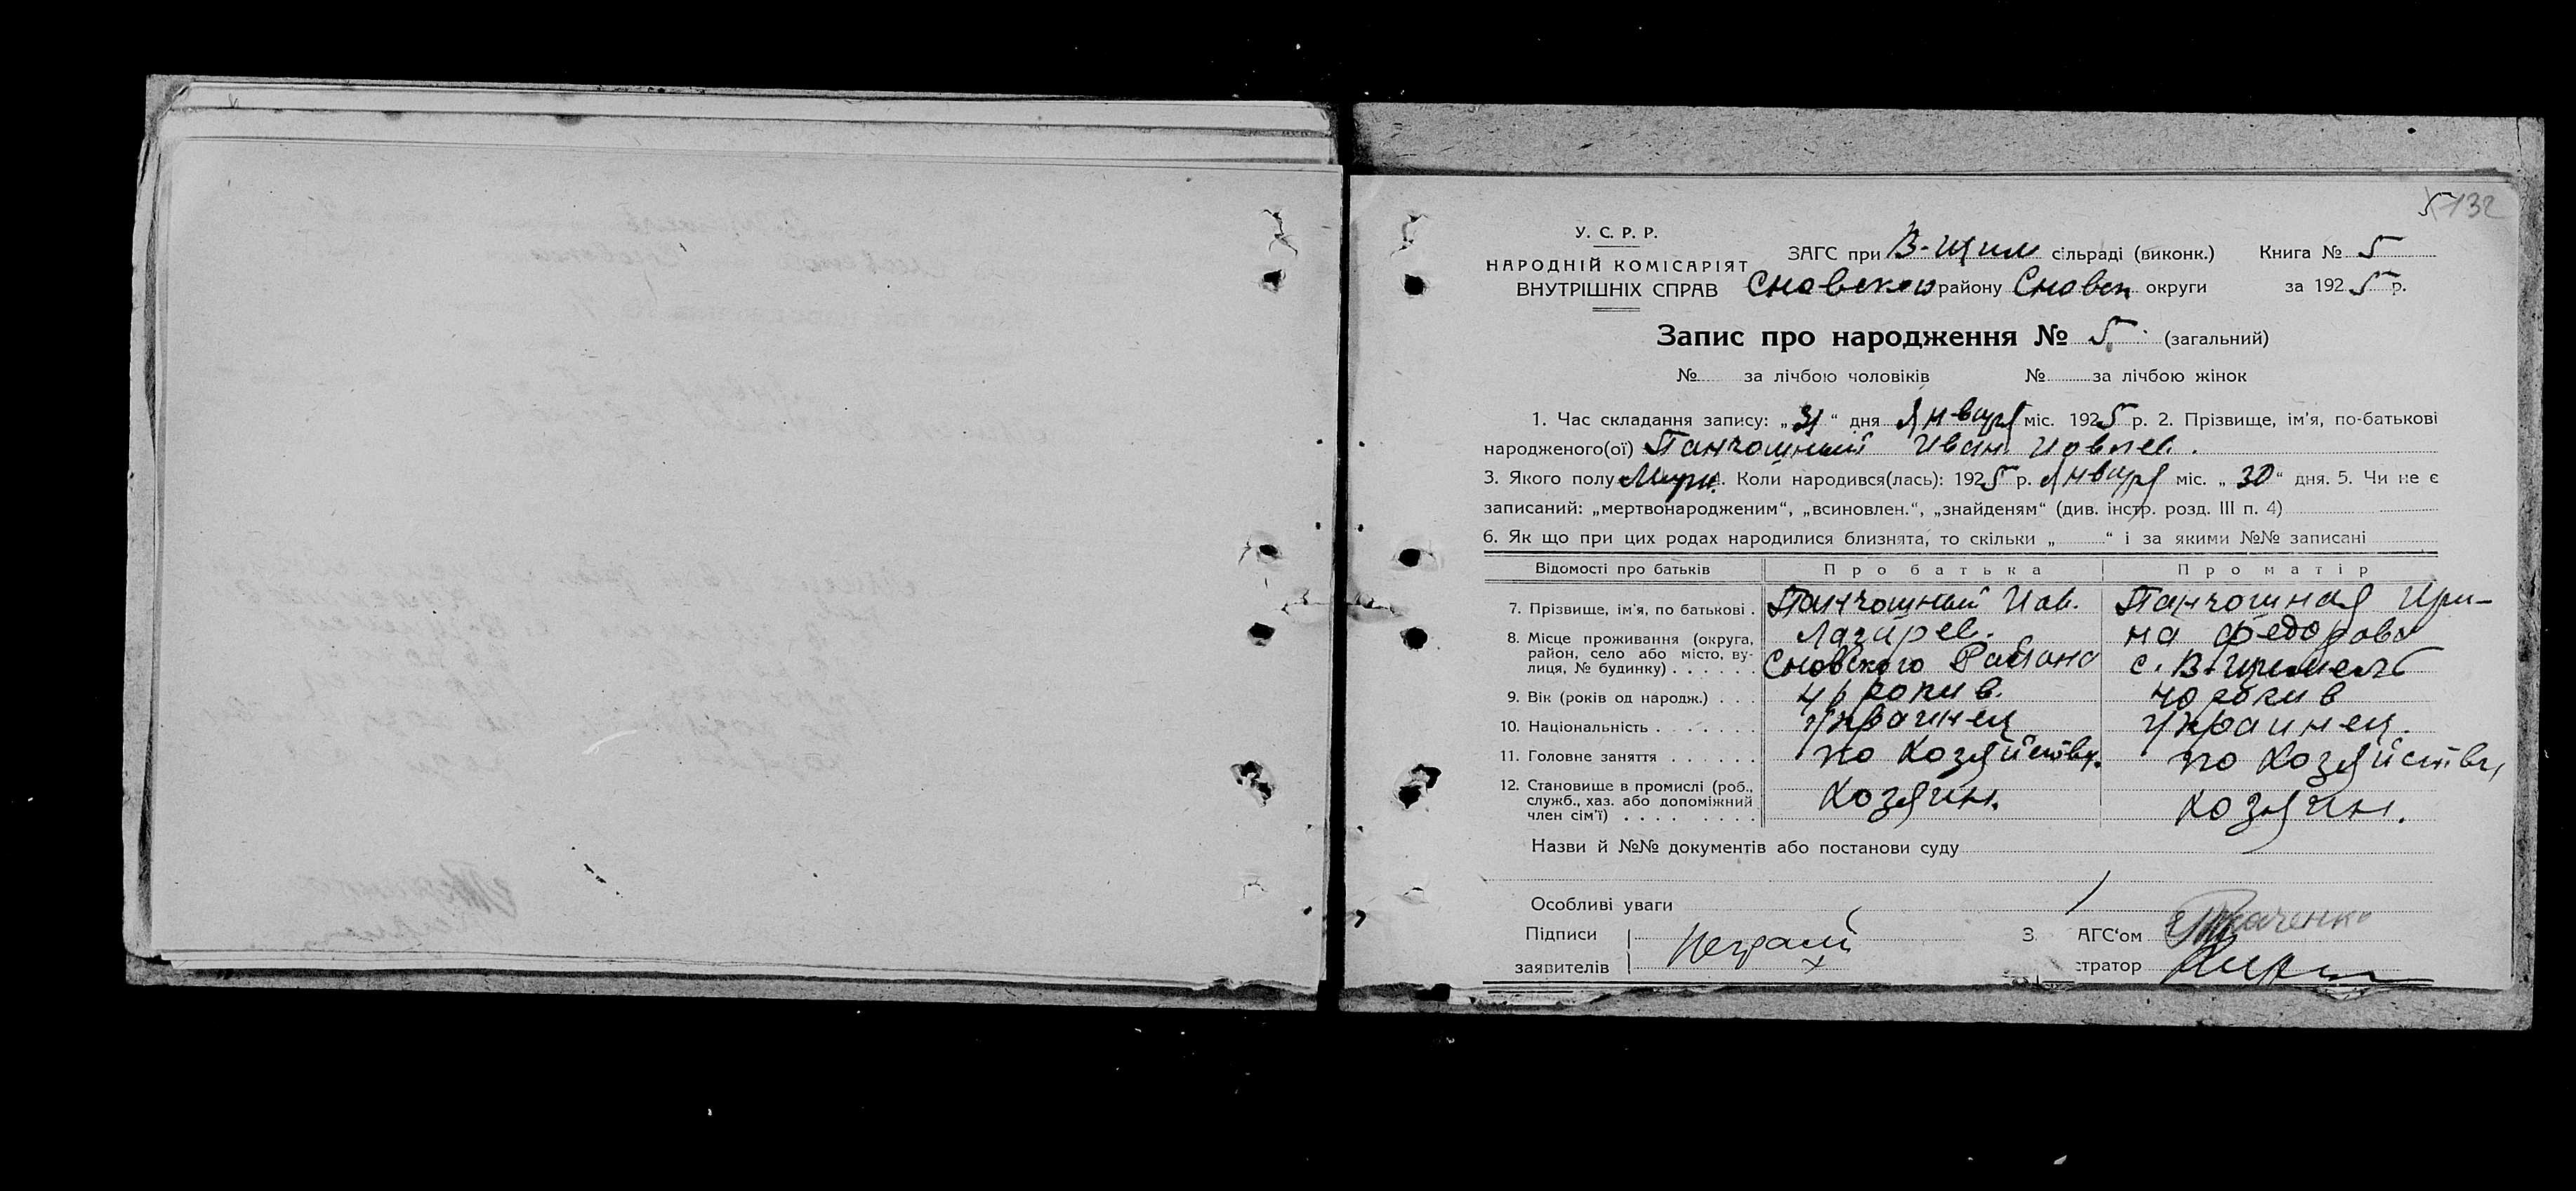 132
У. С. Р. Р.
НАРОДНІЙ КОМІСАРІЯТ
ВНУТРІШНІХ СПРАВ
ЗАГС при В-Щим сільраді (виконк.) Книга № 5
Сновского району Сновск округи за 1925 р.
Запис про народження № 5 (загальний)
№ за лічбою чоловіків № за лічбою жінок
1. Час складання запису: „31“ дня Января міс. 1925 р. 2. Прізвище, ім'я, по-батькові
народженого(ої) Панчошный Иван Иовлев.
3. Якого полу Мужч. 4. Коли народився(лась): 1925 р. января міс. „30“ дня. 5. Чи не є
записаний: „мертвонародженим“, „всиновлен.“, „знайденям“ (див. інстр. розд. III п. 4)
6. Як що при цих родах народилися близнята, то скільки „ “ і за якими №№ записані
Відомості про батьків Про батька Про матір
7. Прізвище, ім'я, по батькові . Панчошный Иов. Панчошная Ири-
Лазарев. на Федорова
8. Місце проживання (округа, район, село або місто, вулиця, № будинку) . . . . . . Сновского Района с. В-Щимель
9. Вік (років од народж.) . . . роки в. 40 роки в
10. Національність . . . . . . . Украинец Украинец.
11. Головне заняття . . . . . . по хозяйству. по хозяйству
12. Становище в промислі (роб., служб., хаз. або допоміжний член сім'ї) . . . . . . . . Хозяин. хозяин.
Назви й №№ документів або постанови суду
Особливі уваги
Підписи
заявителів
З АГС'ом Ткаченко
стратор